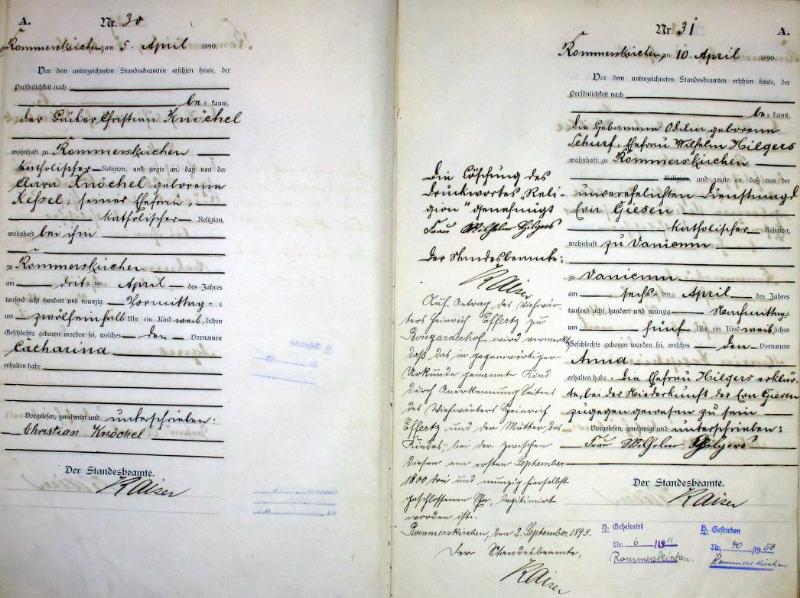 A.
Nr. 30
Rommerskirchen, am 5. April 1890.
Vor dem unterzeichneten Standesbeamten erschien heute, der
Persönlichkeit nach
be = kannt,
der Bäcker Christian Knöchel
wohnhaft zu Rommerskirchen
katholischer Religion, und zeigte an, daß von der
Clara Knöchel geborenen
Kessel, seiner Ehefrau,
katholischer Religion,
wohnhaft bei ihm
zu Rommerskirchen
am drit ten April des Jahres
tausend acht hundert und neunzig Vormittag-
um zwölfeinhalb Uhr ein Kind weib lichen
Geschlechts geboren worden sei, welches den Vornamen
Catharina
erhalten habe
Vorgelesen, genehmigt und unterschrieben:
Christian Knöchel
Der Standesbeamte.
Kaiser
Die Löschung des
Druckwortes „Reli-
gion" genehmigt
Frau Wilhelm Hilgers
Der Standesbeamte:
Kaiser
Auf Antrag des
Heinrich Effertz zu
Bongarderhof wird vermerkt
daß das in gegenwärtiger
Urkunde genannte Kind
durch Anerkennung Seitens
des Heinrich
Effertz und der Mutter des
Kindes, bei der zwischen
diesen am ersten September
1800 drei und neunzig hierselbst
geschlossenen Ehe, legitimirt
worden ist.
Rommerskirchen, den 2. September 1893.
Der Standesbeamte,
Kaiser
Nr. 31
A.
Rommerskirchen, am 10. April 1890.
Vor dem unterzeichneten Standesbeamten erschien heute, der
Persönlichkeit nach
be = kannt,
die Hebamme Odilia geborene
Schurf, Ehefrau Wilhelm Hilgers
wohnhaft zu Rommerskirchen
Religion, und zeigte an, daß von der
unverehelichten Dienstmagd
Eva Giesen
katholischer Religion,
wohnhaft zu Vanicum
zu Vanicum
am sechs ten April des Jahres
tausend acht hundert und neunzig Nachmittag-
um fünf Uhr ein Kind weib lichen
Geschlechts geboren worden sei, welches den Vornamen
Anna
erhalten habe. Die Ehefrau Hilgers erklär-
te, bei der Niederkunft der Eva Giesen
zugegen gewesen zu sein
Vorgelesen, genehmigt und unterschrieben:
Frau Wilhelm Hilgers
Der Standesbeamte.
Kaiser
Geheiratet
Nr. 6 /19
Rommerskirchen.
Gestorben
Nr. 40 /19
Rommerskirchen